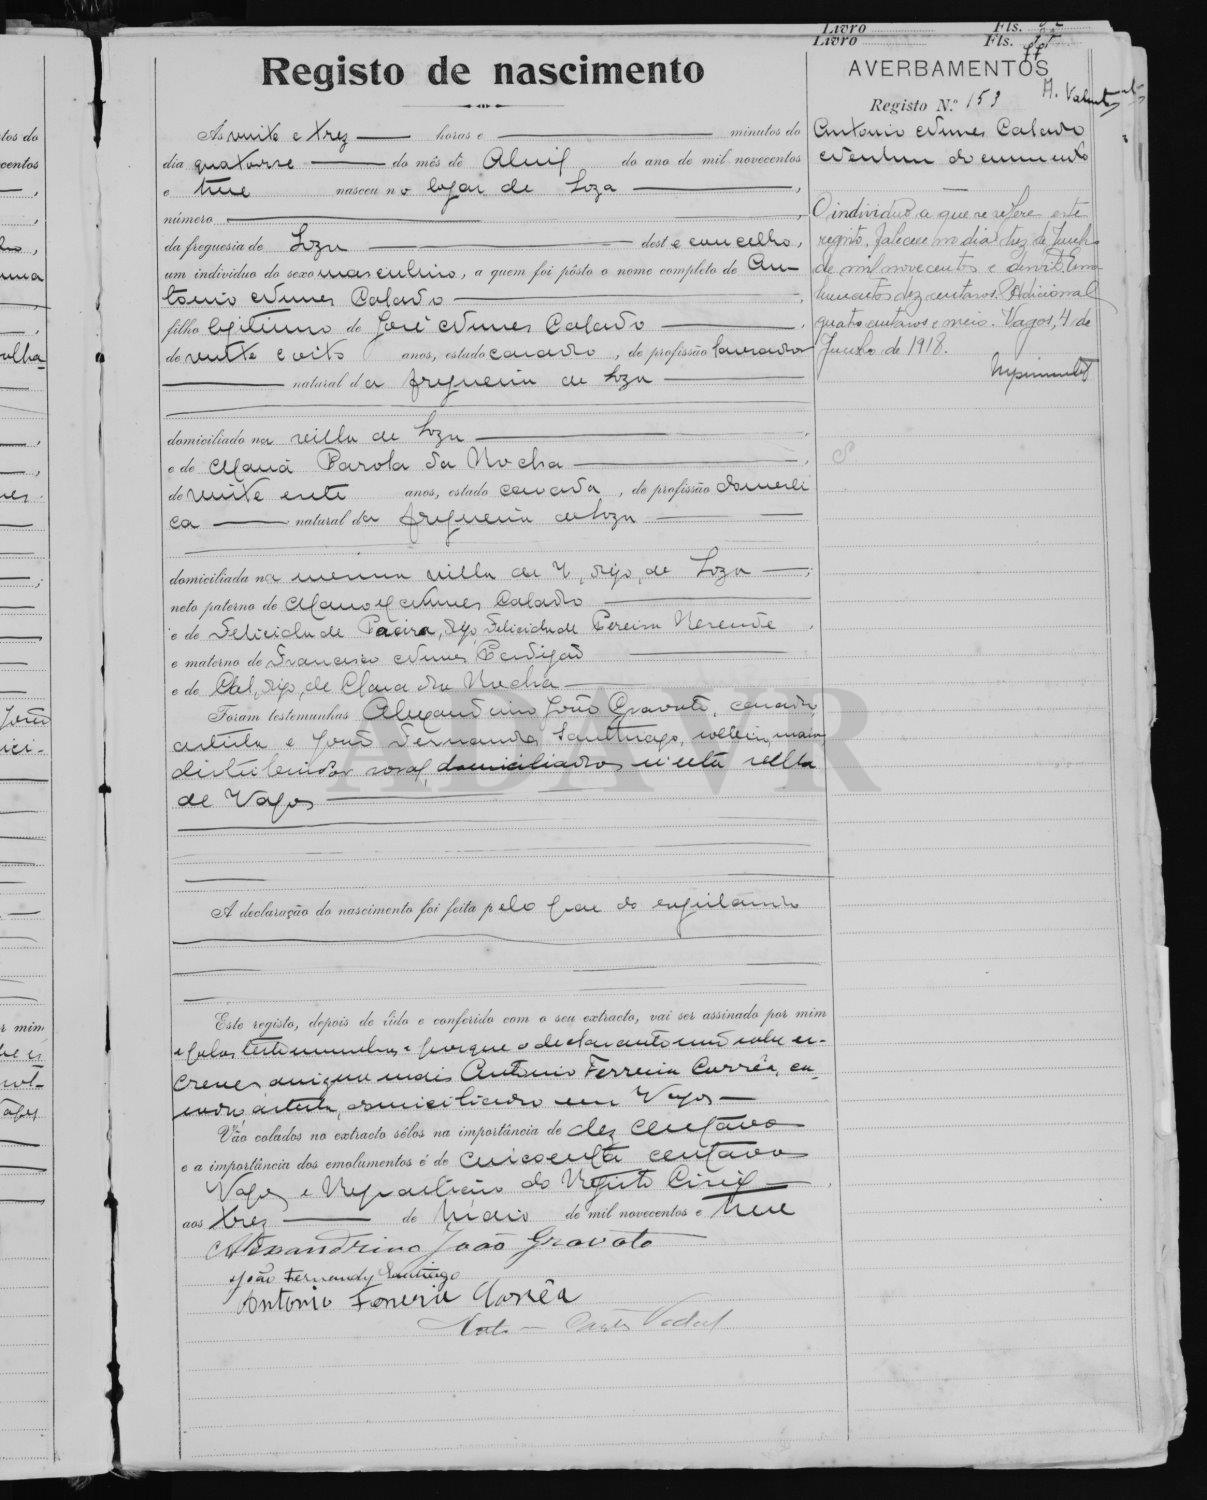 Livro Fls.
Livro Fls.
Registo de nascimento
Ás vinte e trez horas e minutos do
dia quatorze do mês de Abril do ano de mil novecentos
e treze nasceu no logar de Soza,
número
da freguesia de Soza deste concelho,
um individuo do sexo masculino, a quem foi pôsto o nome completo de An-
tonio Nunes Calado
filho legitimo de José Nunes Calado,
de vinte e oito anos, estado casado, de profissão lavrador
natural da freguesia de Soza
domiciliado na villa de Soza,
e de Maria Parola da Rocha,
de vinte e sete anos, estado casada, de profissão domesti
ca natural da freguesia de Soza
domiciliada na mesma villa de V, digo, de Soza;
neto paterno de Manoel Nunes Calado
e de Felicidade Pacira, digo, Felicidade Pereira Rezende,
e materno de Francisco Nunes Perdigão
e de Cal, digo, de Clara da Rocha
Foram testemunhas Alexandrino João Gravato, casado,
artista e João Fernandes Santhiago, solteiro, maior
distribuidor rural, domiciliados n'esta villa
de Vagos
A declaração do nascimento foi feita pelo pae do registando
Este registo, depois de lido e conferido com o seu extracto, vai ser assinado por mim
e pelas testemunhas e porque o declarante não sabe es-
crever assigna mais Antonio Ferreira Corrêa, ca-
sado, artista, domiciliado em Vagos
Vão colados no extracto sêlos na importância de dez centavos
e a importância dos emolumentos é de cincoenta centavos
Vagos e Repartição do Registo Civil,
aos trez de Maio de mil novecentos e treze
Alexandrino João Gravato
João Fernandes Santiago
Antonio Ferreira Corrêa
AVERBAMENTOS
Registo N.º 153
Antonio Nunes Calado
O individuo a que se refere este
registo, faleceu no dia trez de Junho
de mil novecentos e dezoito. Emo-
lumentos dez centavos. Adicional
quatro centavos e meio. Vagos, 4 de
Junho de 1918.
ADAVR